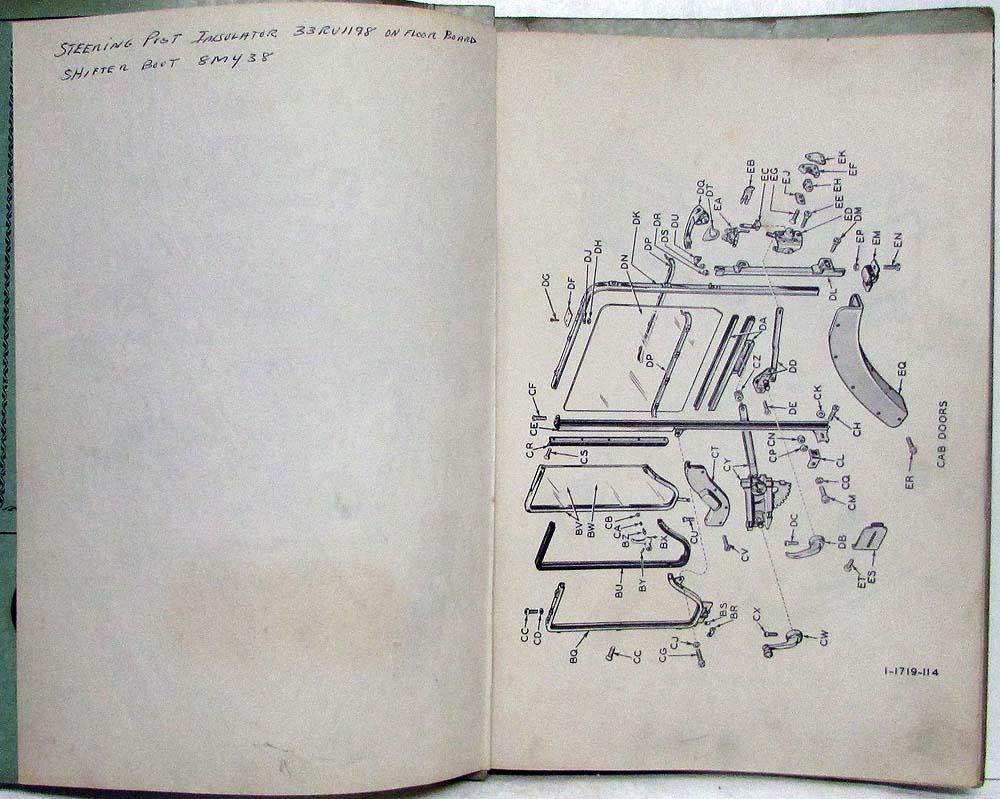 STEERING POST INSULATOR 33RU1198 ON FLOOR BOARD
SHIFTER BOOT 8MY38
EK
EF
EB
EC
EG
EJ
EH
DQ
DT
EA
EE
ED
DM
DK
DP
DR
DS
DU
EP
EM
EN
DG
DF
DJ
DH
DN
DL
DP
DA
CZ
DD
EQ
CF
CE
DE
CK
CH
CR
CS
CN
CP
CL
CT
CY
CQ
CM
ER
CAB DOORS
BV
BW
CB
CA
BZ
BX
CU
CV
DC
DB
BU
BY
ET
ES
CC
CD
BS
BR
CX
BQ
CC
CG
CJ
CW
1-1719-114